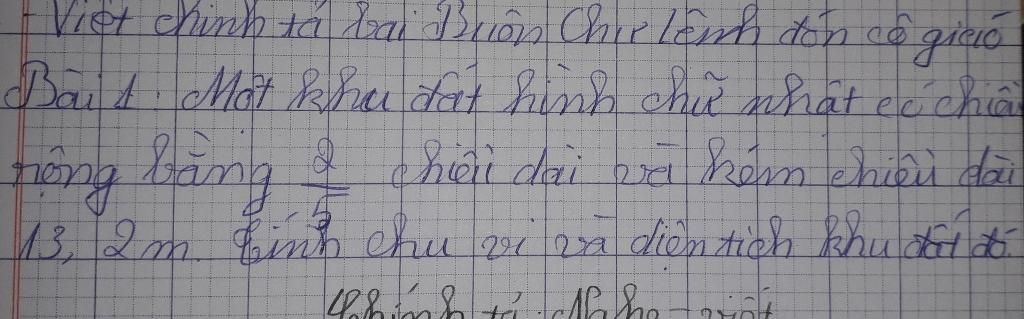 - Viết chính tả bài Buôn Chư Lênh đón cô giáo
Bài 1. Một khu đất hình chữ nhật có chiều
rộng bằng 2/5 chiều dài và kém chiều dài
13, 2 m. Tính chu vi và diện tích khu đất đó.
Chính tả: Nghe - viết